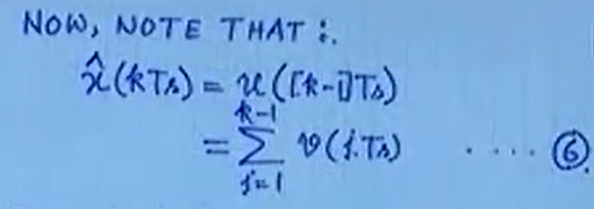 NOW, NOTE THAT :.
x̂(kTs) = x([k-1]Ts)
= ∑_{j=1}^{k-1} v(j.Ts) .... ⑥.